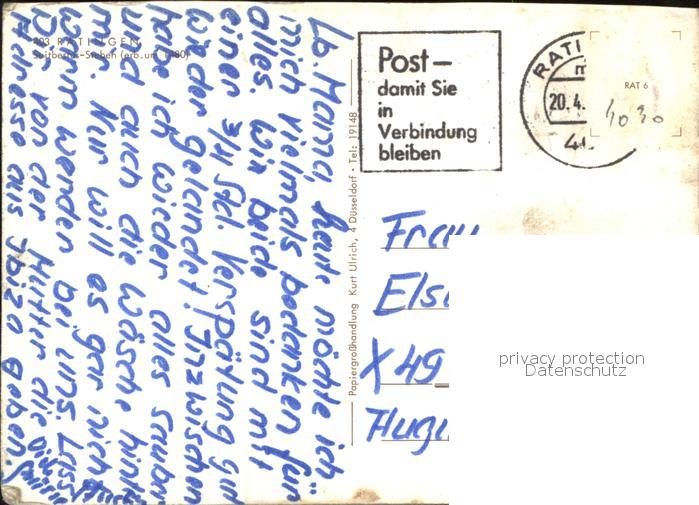 403 RATINGEN
Suitbertus-Stuben (erb. um 1480)
Lb Mama, heute möchte ich
mich vielmals bedanken für
alles. Wir beide sind mit
einer 3/4 Std. Verspätung gut
wieder gelandet! Inzwischen
habe ich wieder alles sauber
und auch die Wäsche hinter
mir. Nur will es gar nicht
warm werden bei uns. Lass
Dir von der Mutter die
Adresse aus Ibiza geben!
Papiergroßhandlung Kurt Ulrich, 4 Düsseldorf · Tel: 19148
Post –
damit Sie
in
Verbindung
bleiben
RATI
20.4.
RAT 6
4030
Frau
Els
X 49
privacy protection
Datenschutz